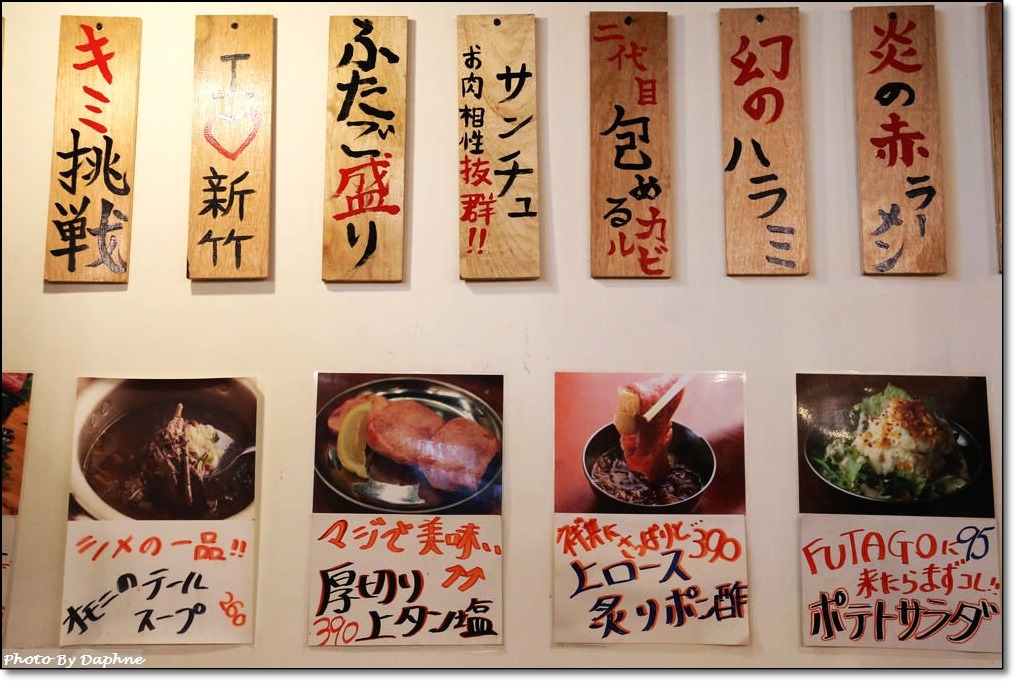 キミ
挑戦
工♡
新竹
ふたご
盛り
サンチュ
お肉相性
抜群!!
二代目
包める
カルビ
幻の
ハラミ
炎の
赤
ラーメン
シメの一品!!
オモニのテール
スープ
マジで美味い
厚切り
390 上タン塩
さっぱりと 390
上ロース
炙りポン酢
FUTAGOに 95
来たらまずコレ!!
ポテトサラダ
Photo By Daphne